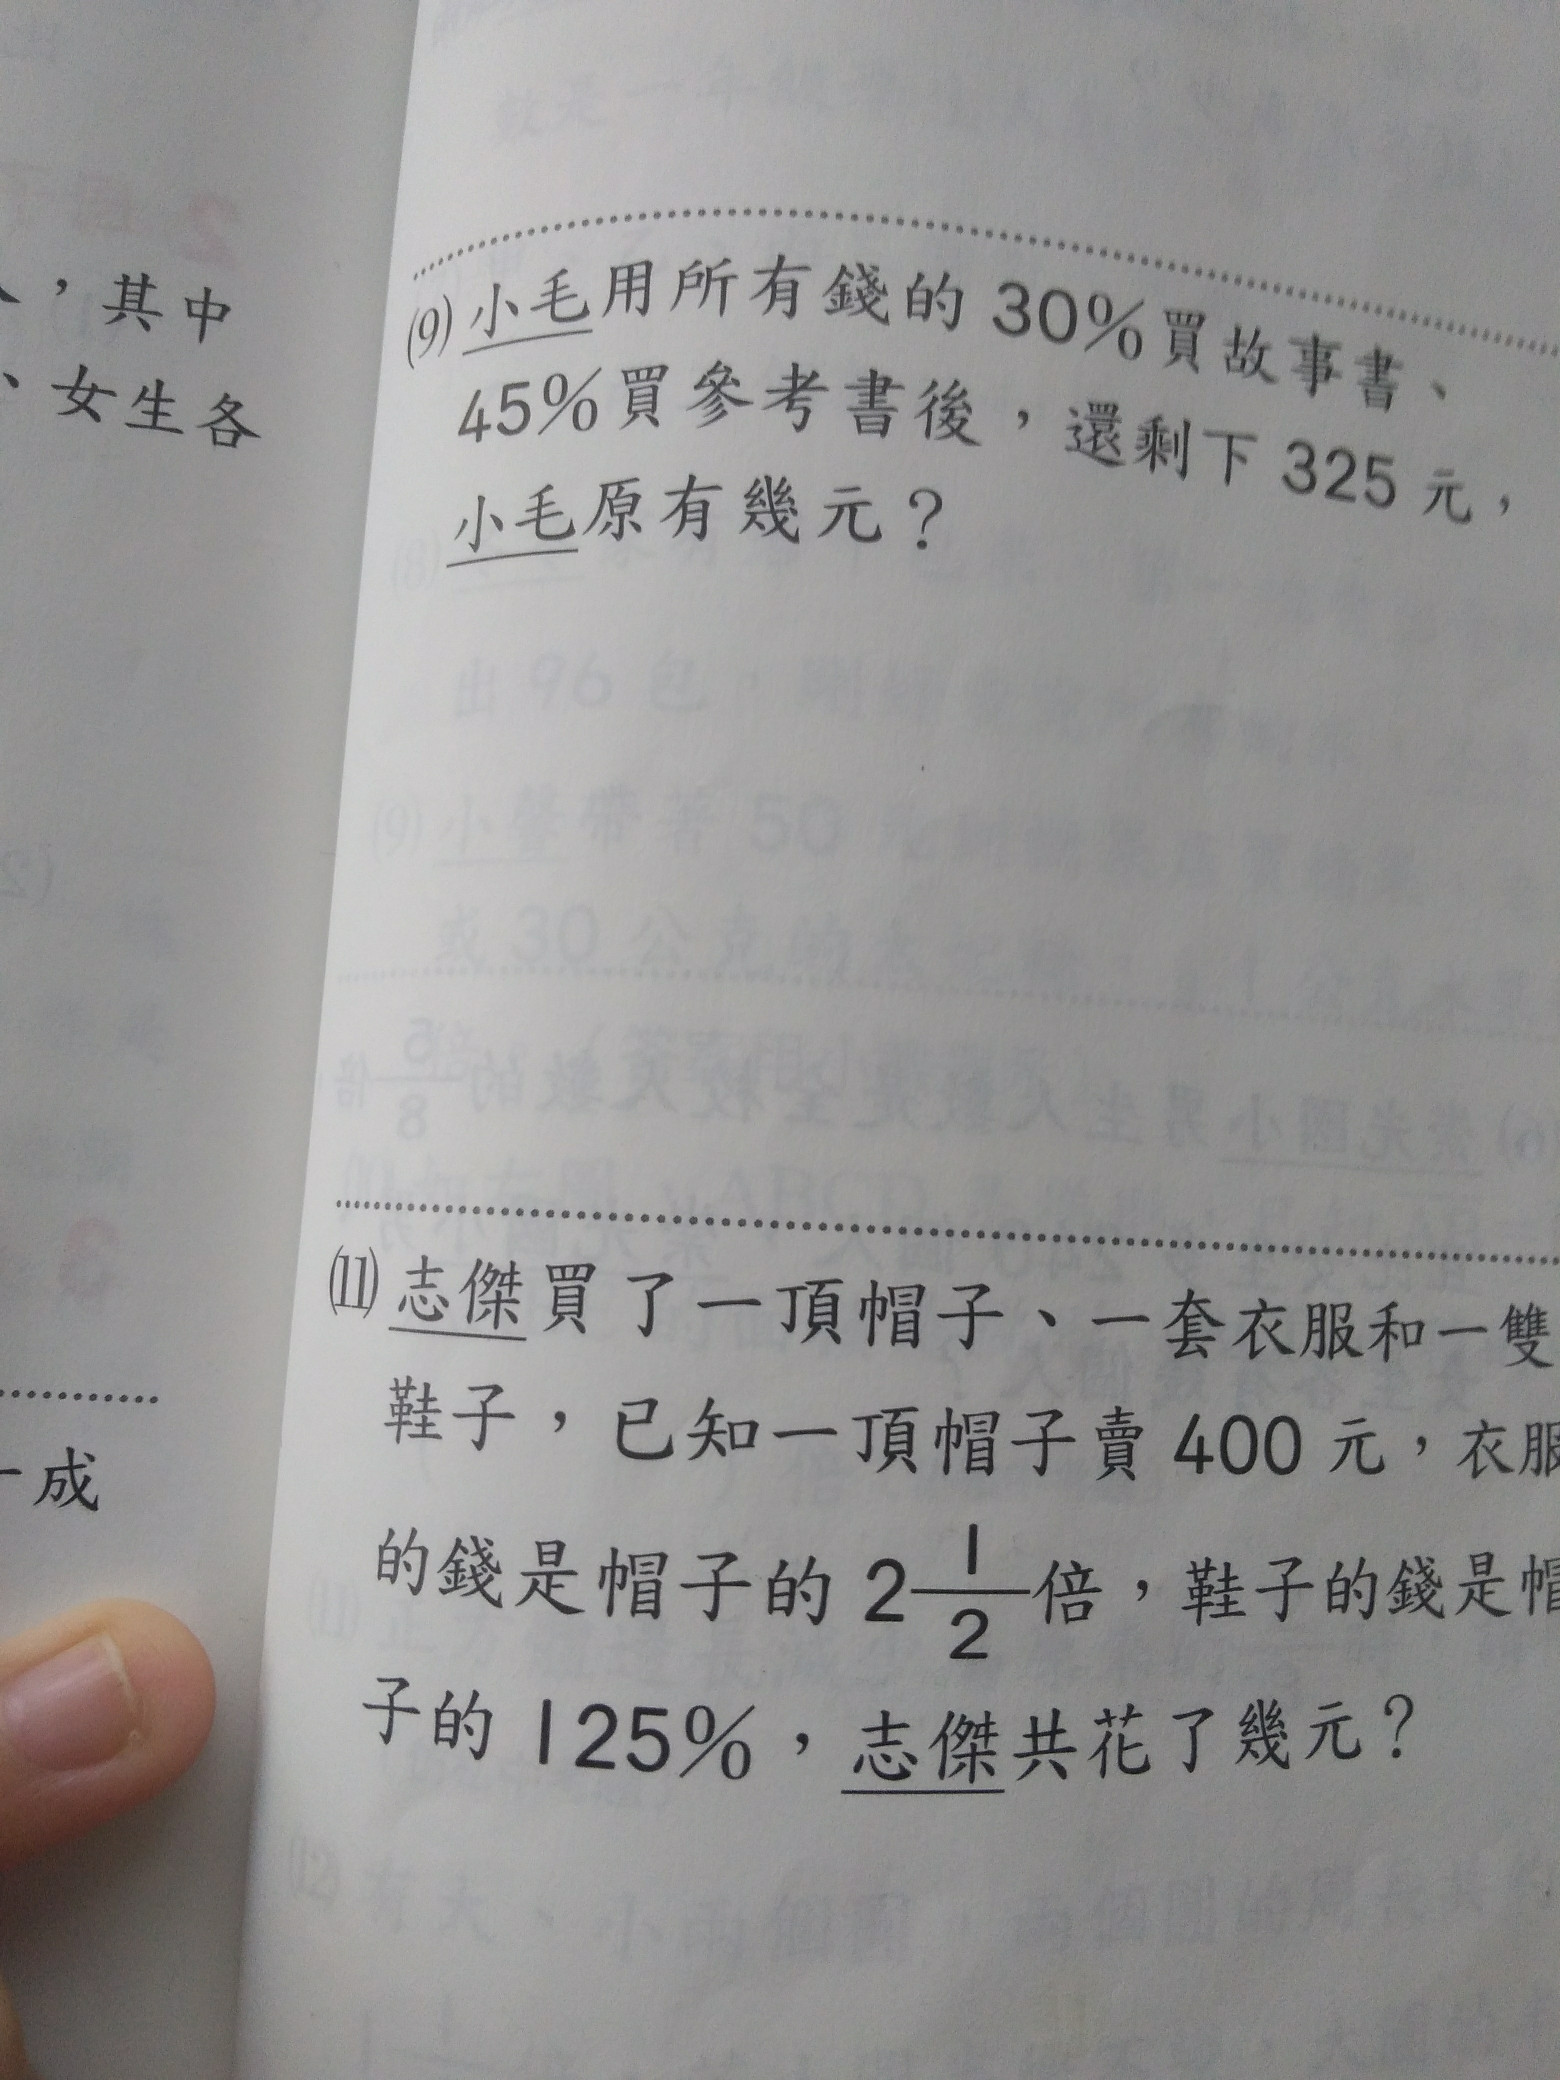 ，其中
、女生各
成
(9)小毛用所有錢的 30%買故事書、
45%買參考書後，還剩下 325 元，
小毛原有幾元？
(11)志傑買了一頂帽子、一套衣服和一雙
鞋子，已知一頂帽子賣 400 元，衣服
的錢是帽子的 2 1/2 倍，鞋子的錢是帽
子的 125%，志傑共花了幾元？